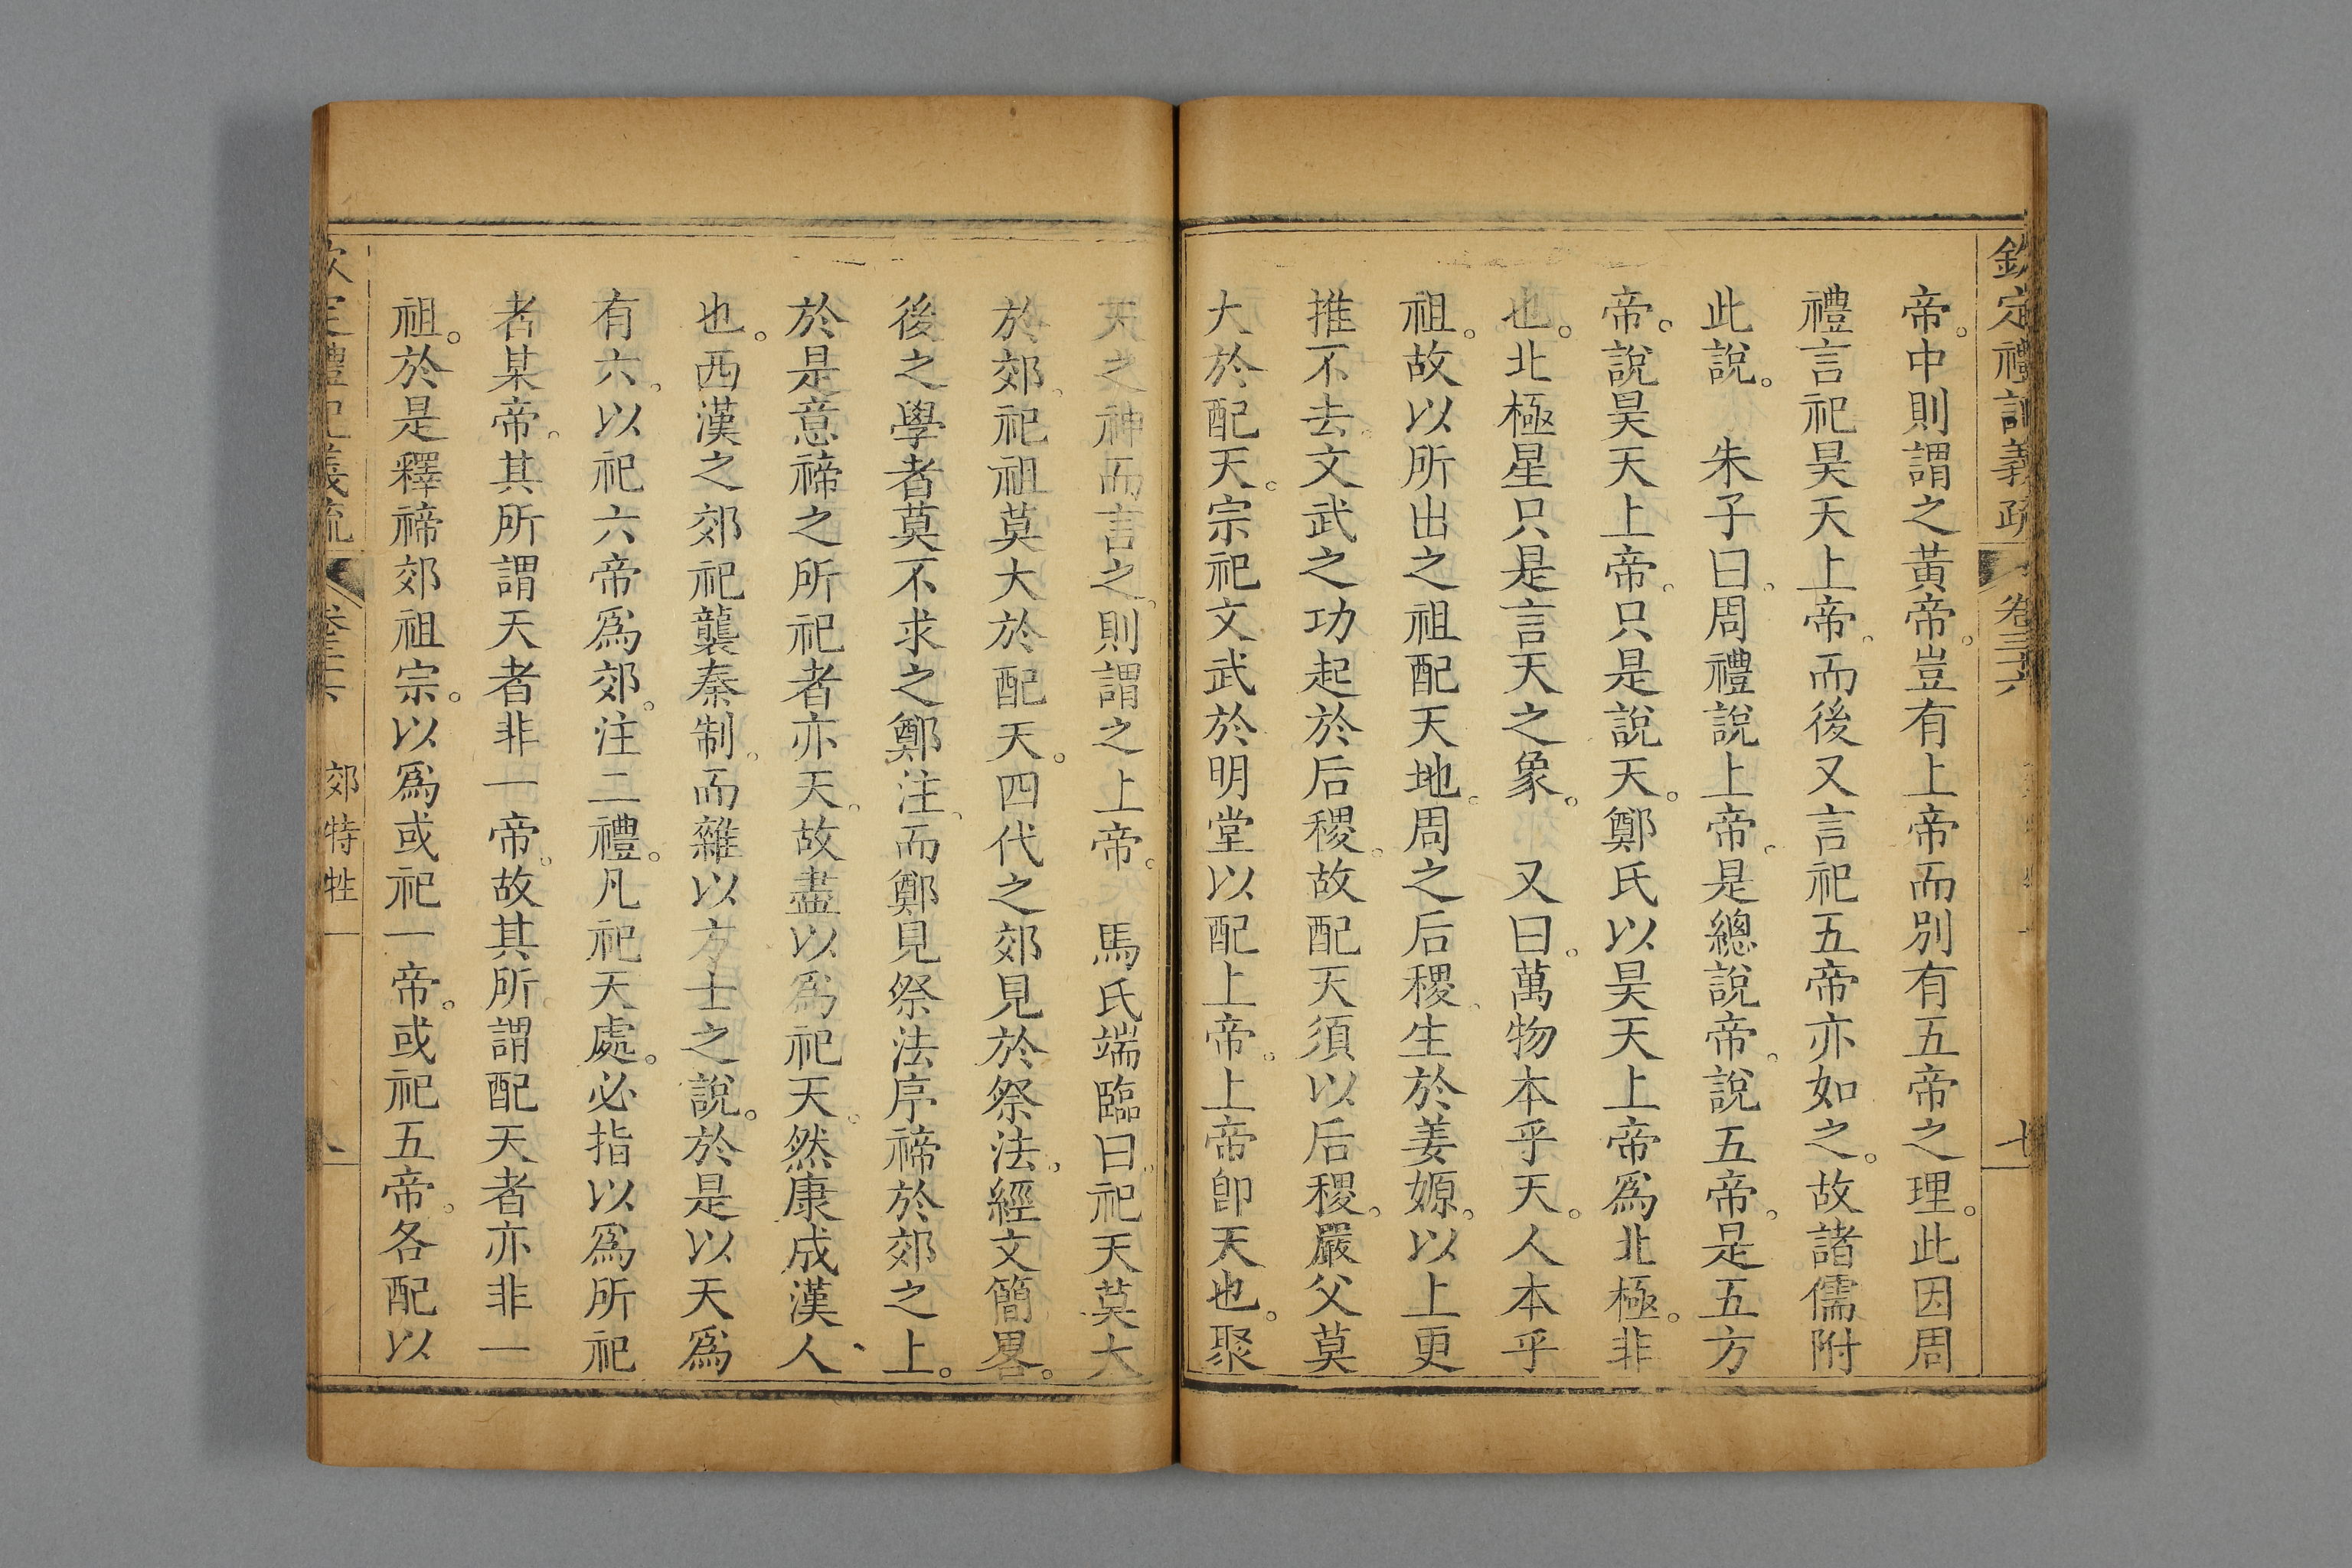 欽定禮記義疏 卷三六
帝。中則謂之黃帝。豈有上帝而別有五帝之理。此因周
禮言祀昊天上帝。而後又言祀五帝亦如之。故諸儒附
此說。 朱子曰。周禮說上帝。是總說帝。說五帝。是五方
帝。說昊天上帝。只是說天。鄭氏以昊天上帝為北極。非
也。北極星只是言天之象。 又曰。萬物本乎天。人本乎
祖。故以所出之祖配天地。周之后稷。生於姜嫄。以上更
推不去。文武之功起於后稷。故配天須以后稷。嚴父莫
大於配天。宗祀文武於明堂以配上帝。上帝卽天也。聚
天之神而言之。則謂之上帝。 馬氏端臨曰。祀天莫大
於郊。祀祖莫大於配天。四代之郊見於祭法。經文簡畧。
後之學者莫不求之鄭注。而鄭見祭法序禘於郊之上。
於是意禘之所祀者亦天。故盡以為祀天。然康成漢人
也。西漢之郊祀襲秦制。而雜以方士之說。於是以天為
有六。以祀六帝為郊。注二禮。凡祀天處。必指以為所祀
者某帝。其所謂天者非一帝。故其所謂配天者亦非一
祖。於是釋禘郊祖宗。以為或祀一帝。或祀五帝。各配以
欽定禮記義疏 卷三六 郊特牲